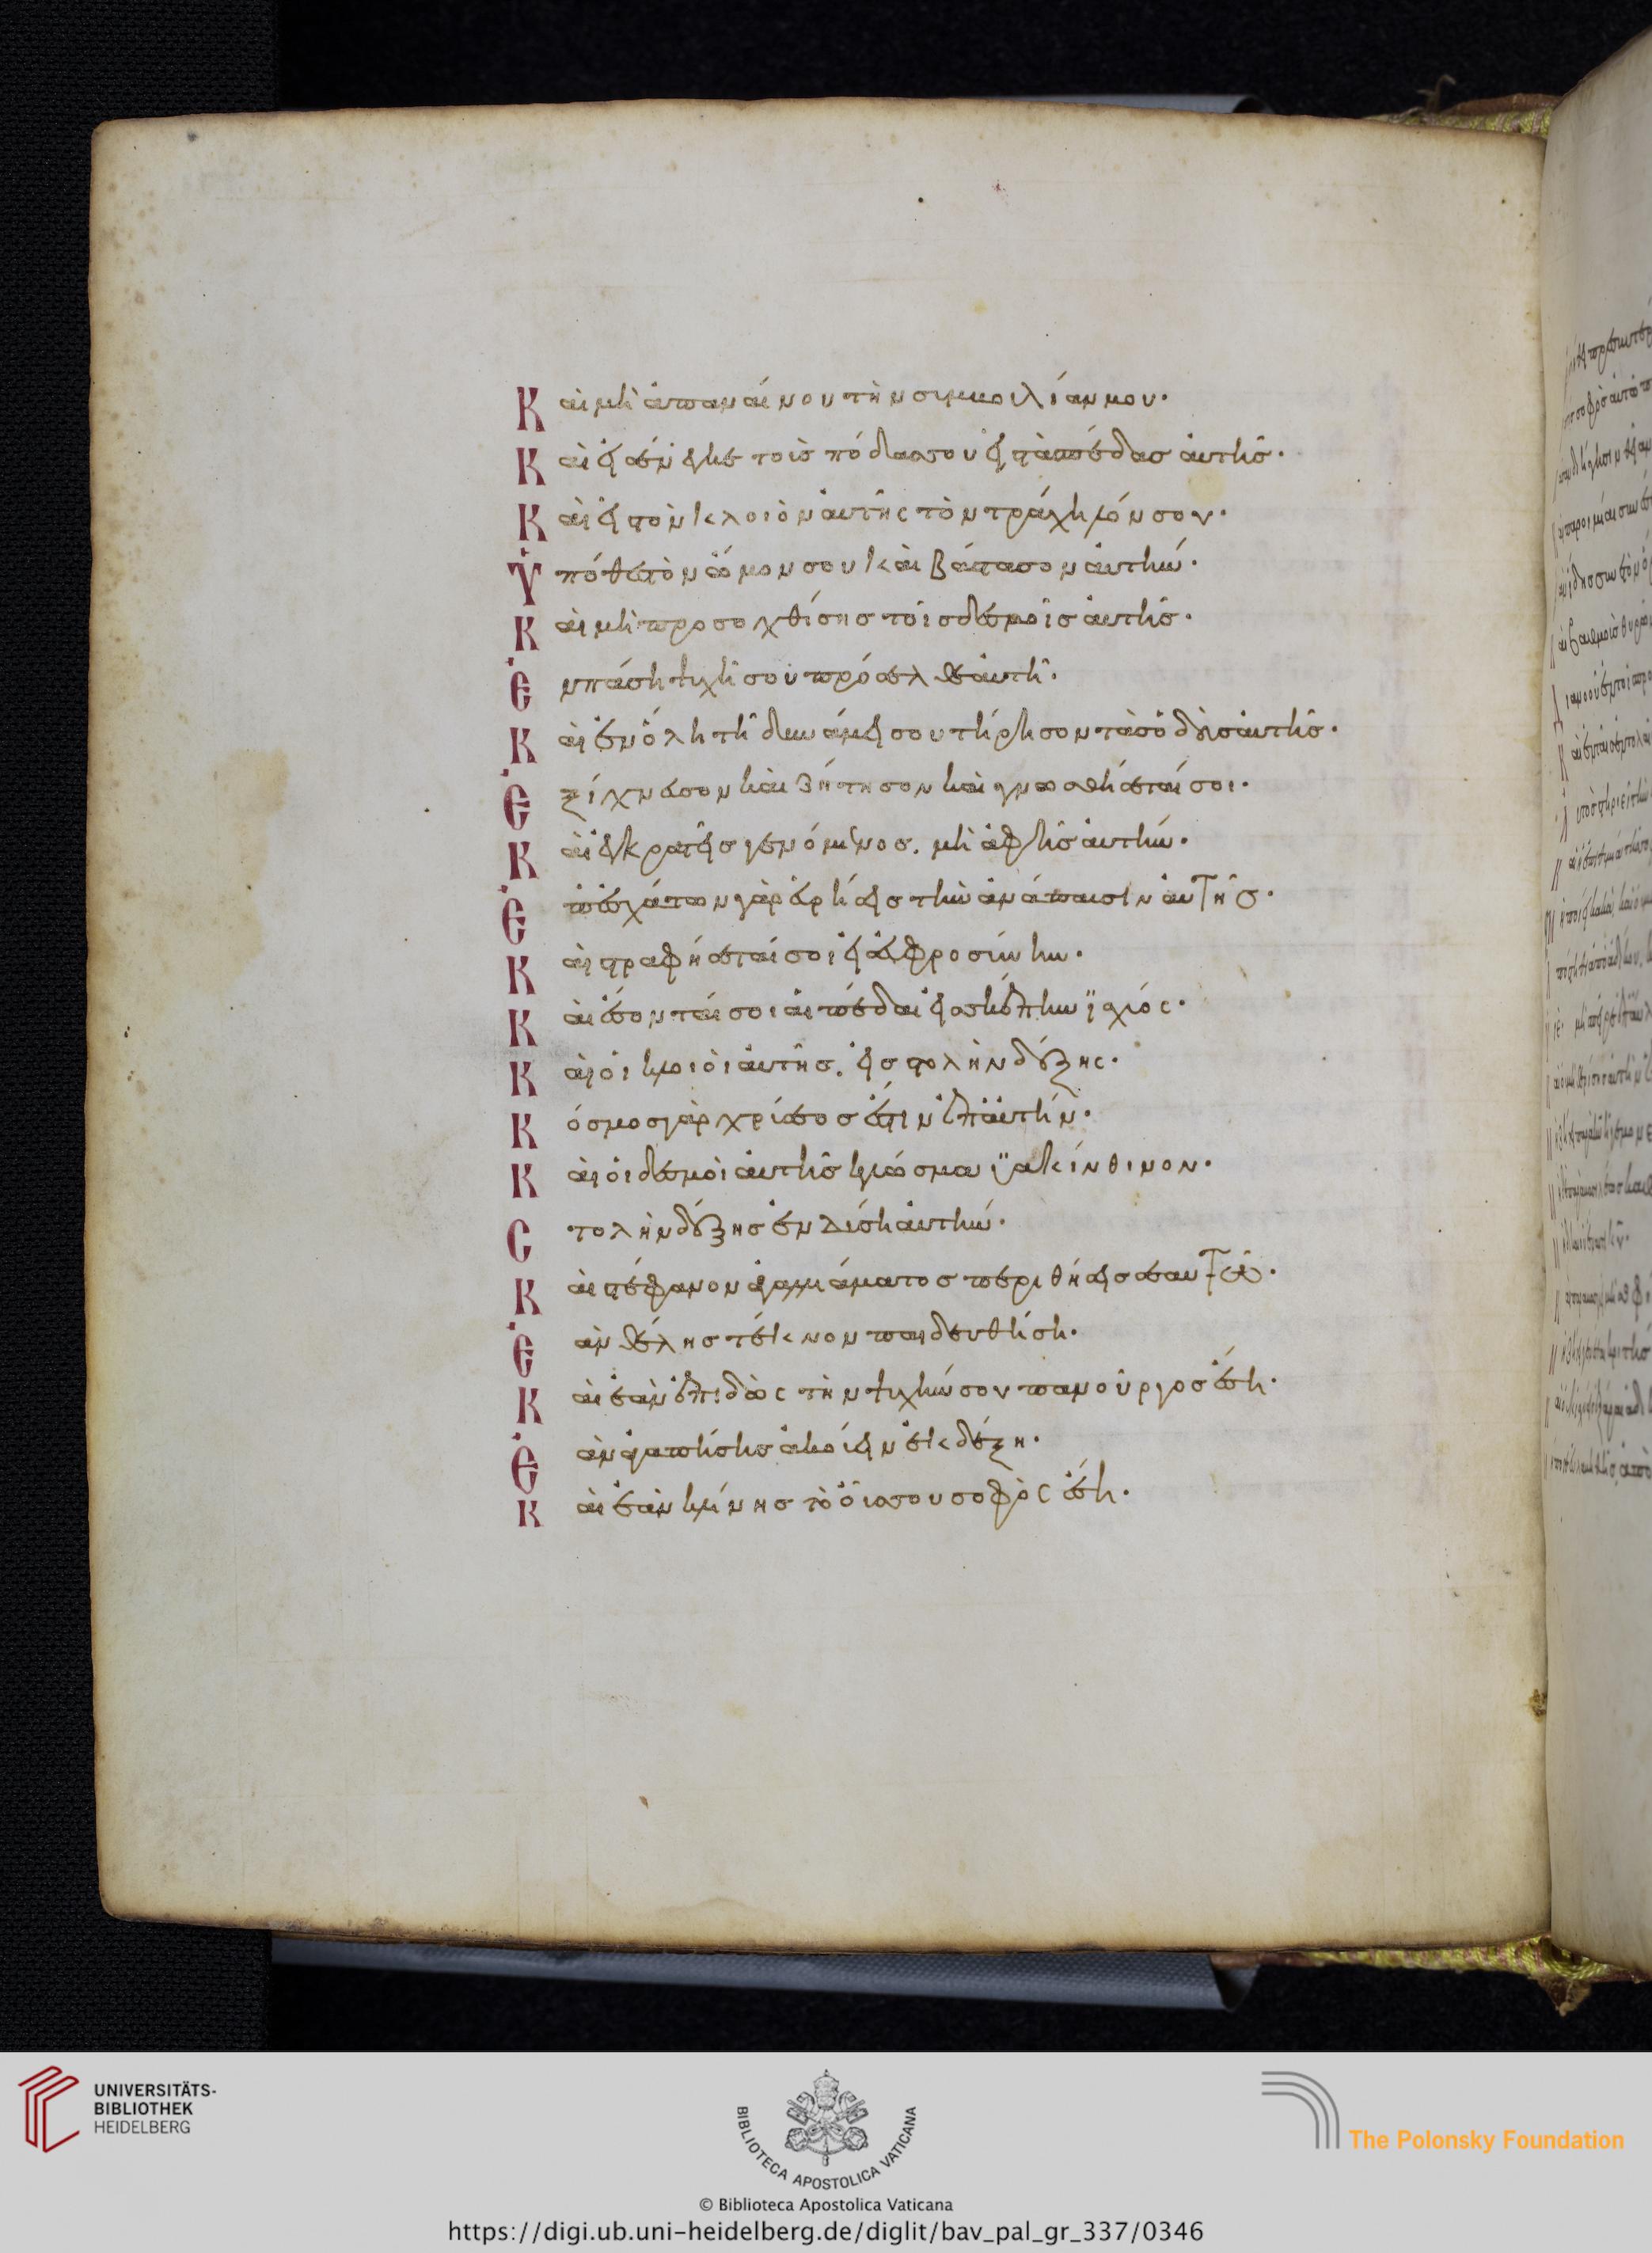 Καὶ μὴ ἀπαναίνου τὴν συμβουλίαν μου·
Καὶ εἰσένεγκε τοὺς πόδας σου εἰς τὰς πέδας αὐτῆς·
Καὶ εἰς τὸν κλοιὸν αὐτῆς τὸν τράχηλόν σου·
Ὑπόθες τὸν ὦμον σου καὶ βάστασον αὐτήν·
Καὶ μὴ προσοχθίσης τοῖς δεσμοῖς αὐτῆς·
Ἐν πάση ψυχῆ σου πρόσελθε αὐτῆ·
Καὶ ἐν ὅλη τῆ δυνάμει σου τήρησον τὰς ὁδοὺς αὐτῆς·
Ἐξίχνευσον καὶ ζήτησον καὶ γνωσθήσεταί σοι·
Καὶ ἐγκρατὴς γενόμενος. μὴ ἀφῆς αὐτήν·
Ἐπεσχάτων γὰρ εὑρήσεις τὴν ἀνάπαυσιν αὐτῆς·
Καὶ στραφήσεταί σοι εἰς εὐφροσύνην·
Καὶ ἔσονταί σοι αἱ πέδαι εἰς σκέπην ϊσχύος·
Καὶ οἱ κλοιοὶ αὐτῆς. εἰς στολὴν δόξης·
Κόσμος γὰρ χρύσεος ἐστιν ἐπ' αὐτήν·
Καὶ οἱ δεσμοὶ αὐτῆς κλῶσμα ϋακίνθινον·
Στολὴν δόξης ἐνδύση αὐτήν·
Καὶ στέφανον ἀγαλλιάματος περιθήσεις σεαυτῶ·
Ἐὰν θέλης τέκνον παιδευθήση·
Καὶ ἐὰν ἐπιδῶς τὴν ψυχήν σου πανοῦργος ἔση·
Ἐὰν ἀγαπήσης ἀκούειν ἐκδέξη·
Καὶ ἐὰν κλίνης τὸ οὖς σου σοφὸς ἔση·
UNIVERSITÄTS-
BIBLIOTHEK
HEIDELBERG
BIBLIOTECA APOSTOLICA VATICANA
The Polonsky Foundation
© Biblioteca Apostolica Vaticana
https://digi.ub.uni-heidelberg.de/diglit/bav_pal_gr_337/0346